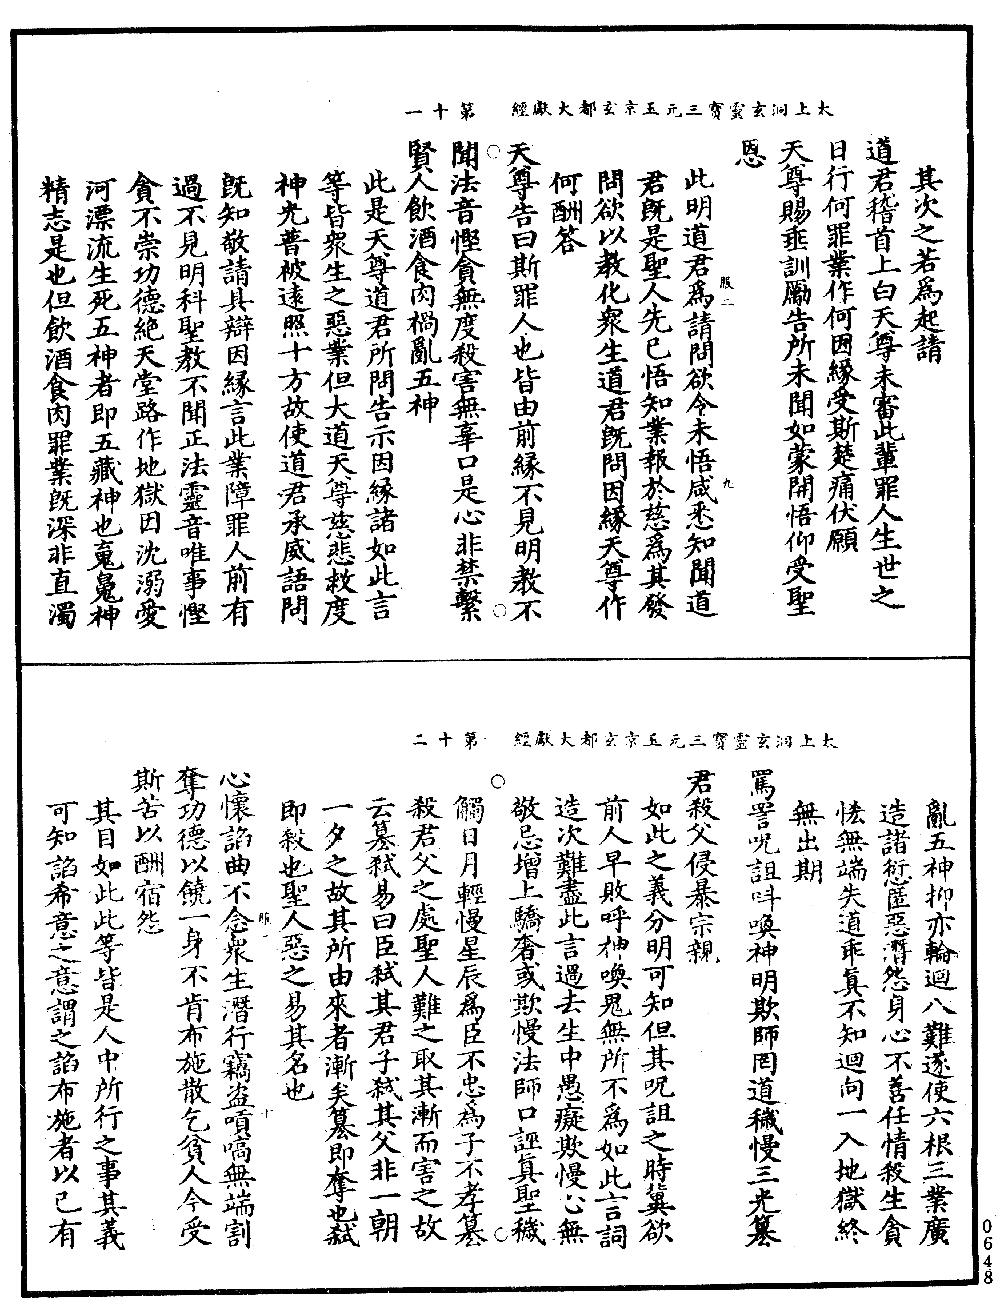 太上洞玄靈寶三元玉京玄都大獻經　第十一
其次之若為起請
道君稽首上白天尊未審此輩罪人生世之
日行何罪業作何因緣受斯楚痛伏願
天尊賜垂訓勵告所未聞如蒙開悟仰受聖
恩
此明道君為請問欲令未悟咸悉知聞道
君既是聖人先已悟知業報於慈為其發
問欲以教化眾生道君既問因緣天尊作
何酬答
天尊告曰斯罪人也皆由前緣不見明教不
聞法音慳貪無度殺害無辜口是心非禁繫
賢人飲酒食肉禍亂五神
此是天尊道君所問告示因緣諸如此言
等皆眾生之惡業但大道天尊慈悲救度
神光普被遠照十方故使道君承威語問
既知敬請具辯因緣言此業障罪人前有
過不見明科聖教不聞正法靈音唯事慳
貪不崇功德絕天堂路作地獄因沈溺愛
河漂流生死五神者即五藏神也䰟魄神
精志是也但飲酒食肉罪業既深非直濁
服二
九
太上洞玄靈寶三元玉京玄都大獻經　第十二
亂五神抑亦輪迴八難遂使六根三業廣
造諸愆匿惡潛怨身心不善任情殺生貪
恡無端失道乖真不知迴向一入地獄終
無出期
罵詈呪詛呌喚神明欺師罔道穢慢三光篡
君殺父侵暴宗親
如此之義分明可知但其呪詛之時冀欲
前人早敗呼神喚鬼無所不為如此言詞
造次難盡此言過去生中愚癡欺慢心無
敬忌增上驕奢或欺慢法師口誣真聖穢
觸日月輕慢星辰為臣不忠為子不孝篡
殺君父之處聖人難之取其漸而害之故
云篡弒易曰臣弒其君子弒其父非一朝
一夕之故其所由來者漸矣篡即奪也弒
即殺也聖人惡之易其名也
心懷諂曲不念眾生潛行竊盜嗔嗃無端割
奪功德以饒一身不肯布施散乞貧人今受
斯苦以酬宿怨
其目如此此等皆是人中所行之事其義
可知諂希意之意謂之諂布施者以已有
服
十
0648